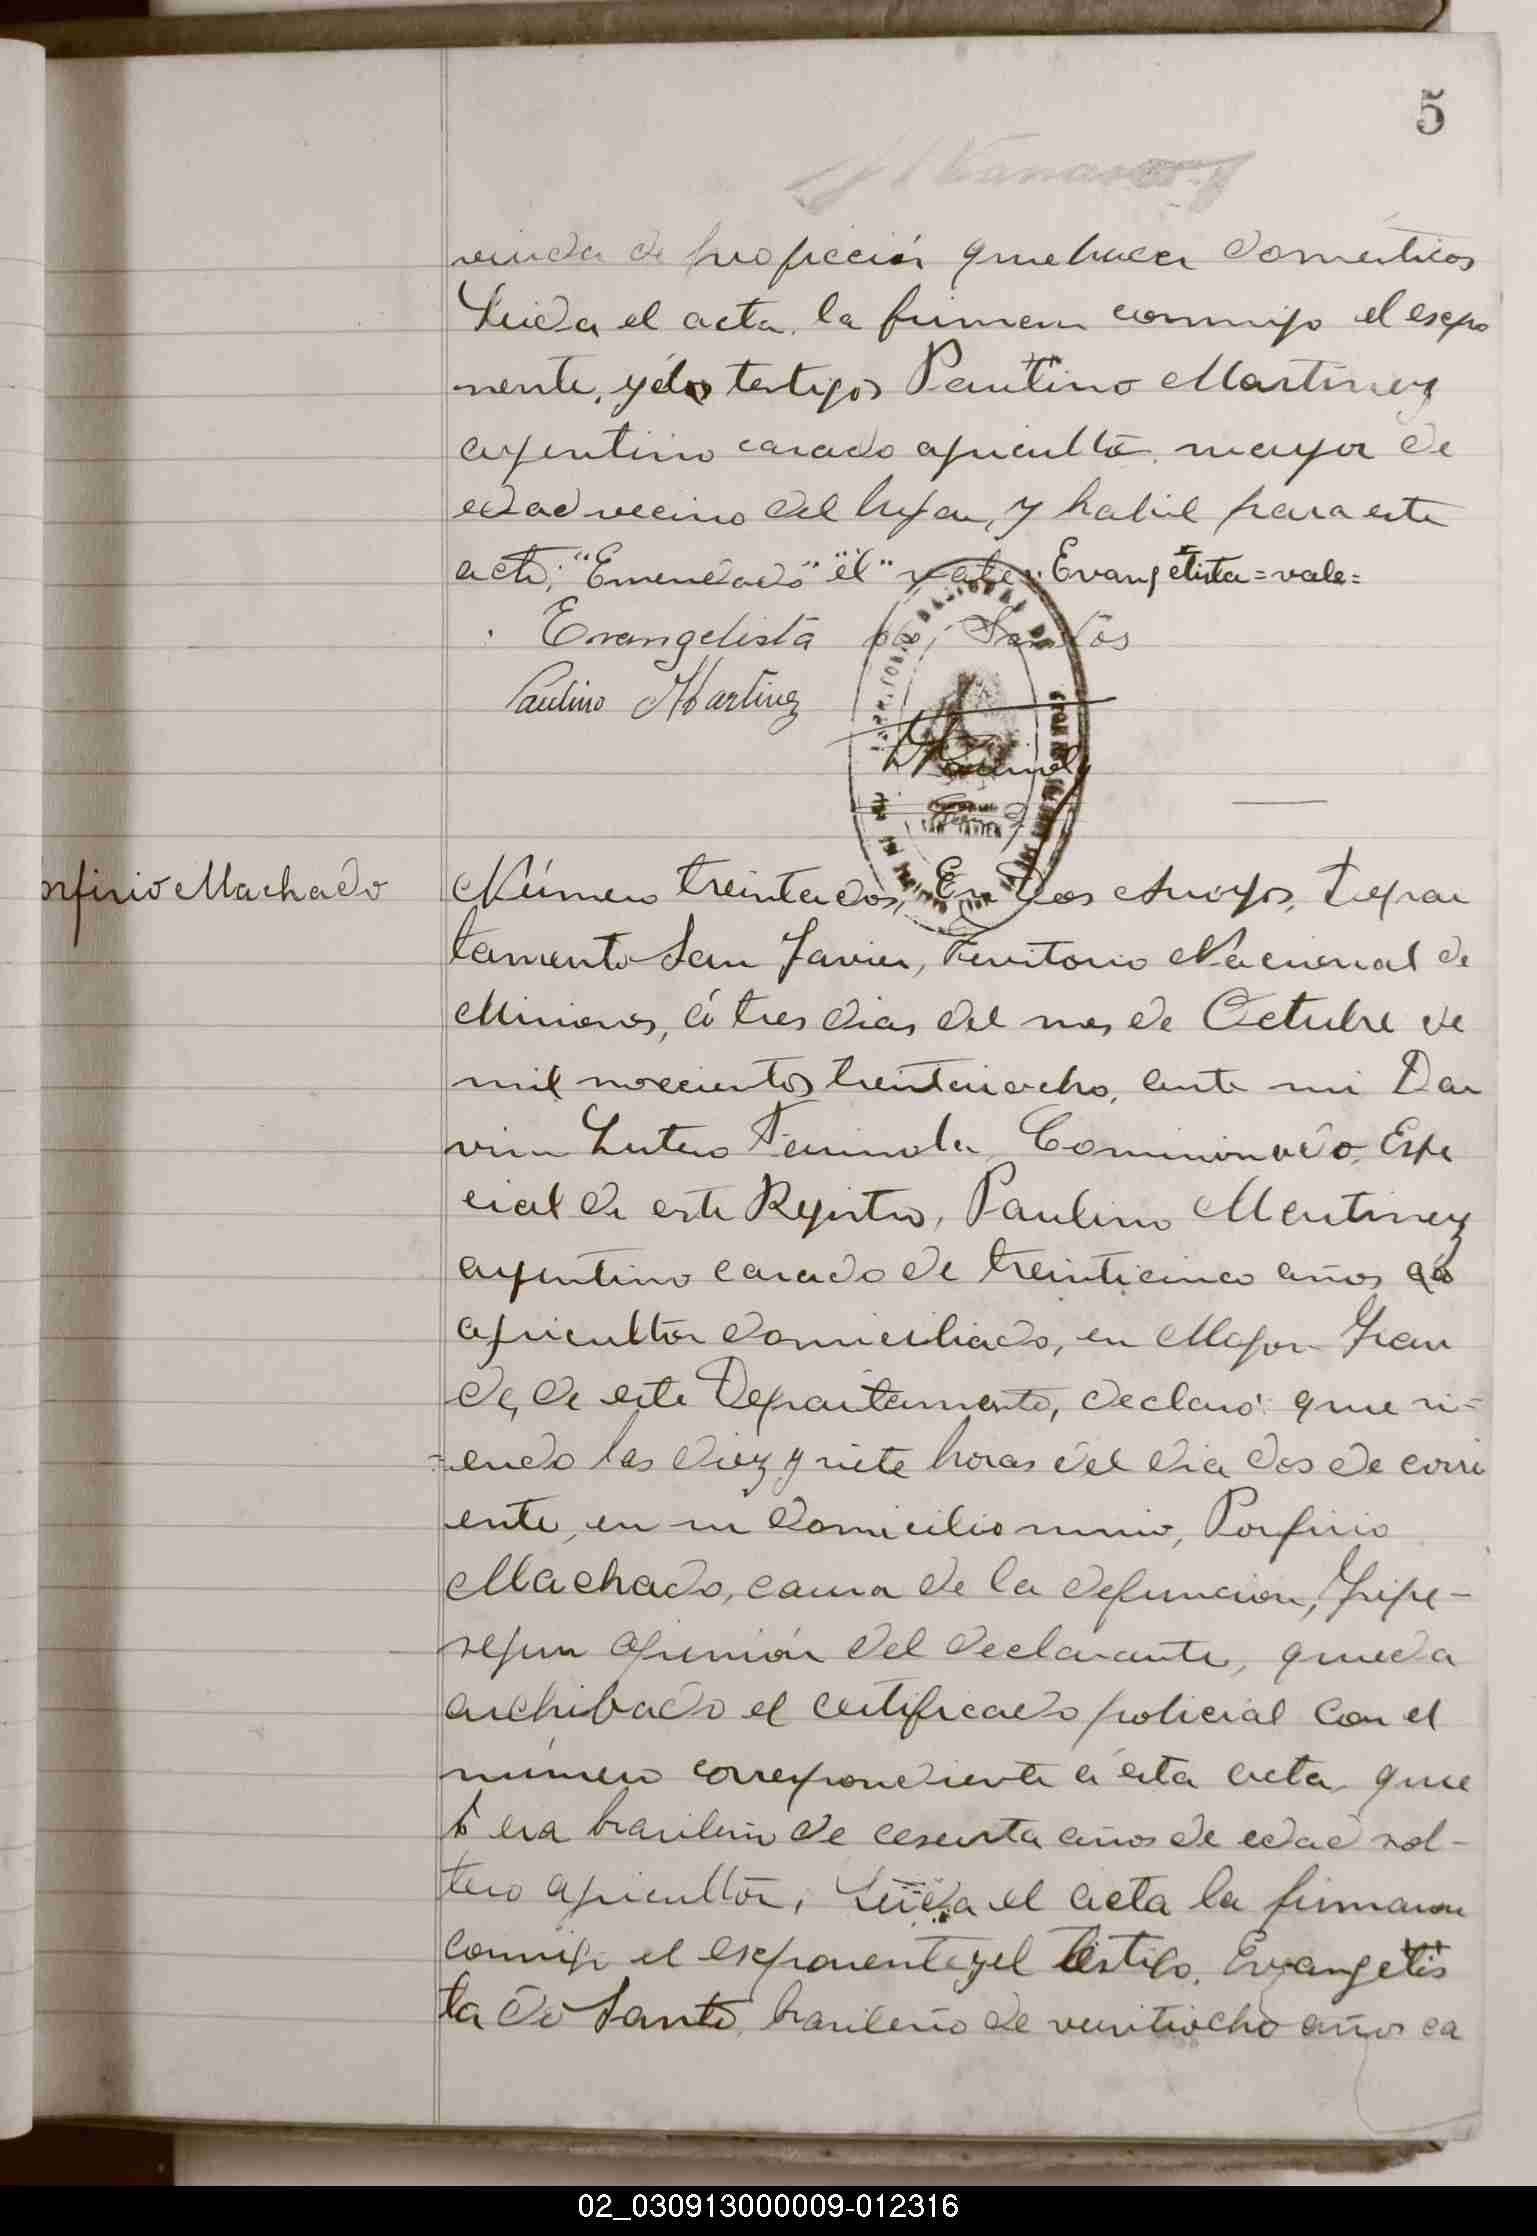 5
viuda de profición quehacer domésticos
Leida el acta, la firman conmigo el expo
nente, y el testigo Paulino Martinez
argentino casado agricultor mayor de
edad vecino del lugar, y habil para este
acto; "Emendado" "el" vale, Evangelista = vale =
Evangelista do Santos
Paulino Martinez
Porfirio Machado
Número treintados, En Dos Arroyos, Depar
tamento San Javier, Territorio Nacional de
Misiones, á tres dias del mes de Octubre de
mil novecientos treintaiocho, ante mi Dar
vin Lutero Comisionado Espe
cial de este Registro, Paulino Martinez
argentino casado de treinticinco años
agricultor domiciliado, en Mojon Gran
de, de este Departamento, declaró: que si=
=endo las diez y siete horas del dia dos de corri
ente, en su domicilio murio, Porfirio
Machado, causa de la defuncion, Gripe-
segun opinión del declarante, queda
archibado el certificado policial con el
número correspondiente á esta acta que
era brasileño de cesenta años de edad sol-
tero agricultor, Leida el acta la firmaron
conmigo el exponente y el testigo, Evangelis
ta do Santo, brasileño de veintiocho años ca
02_030913000009-012316